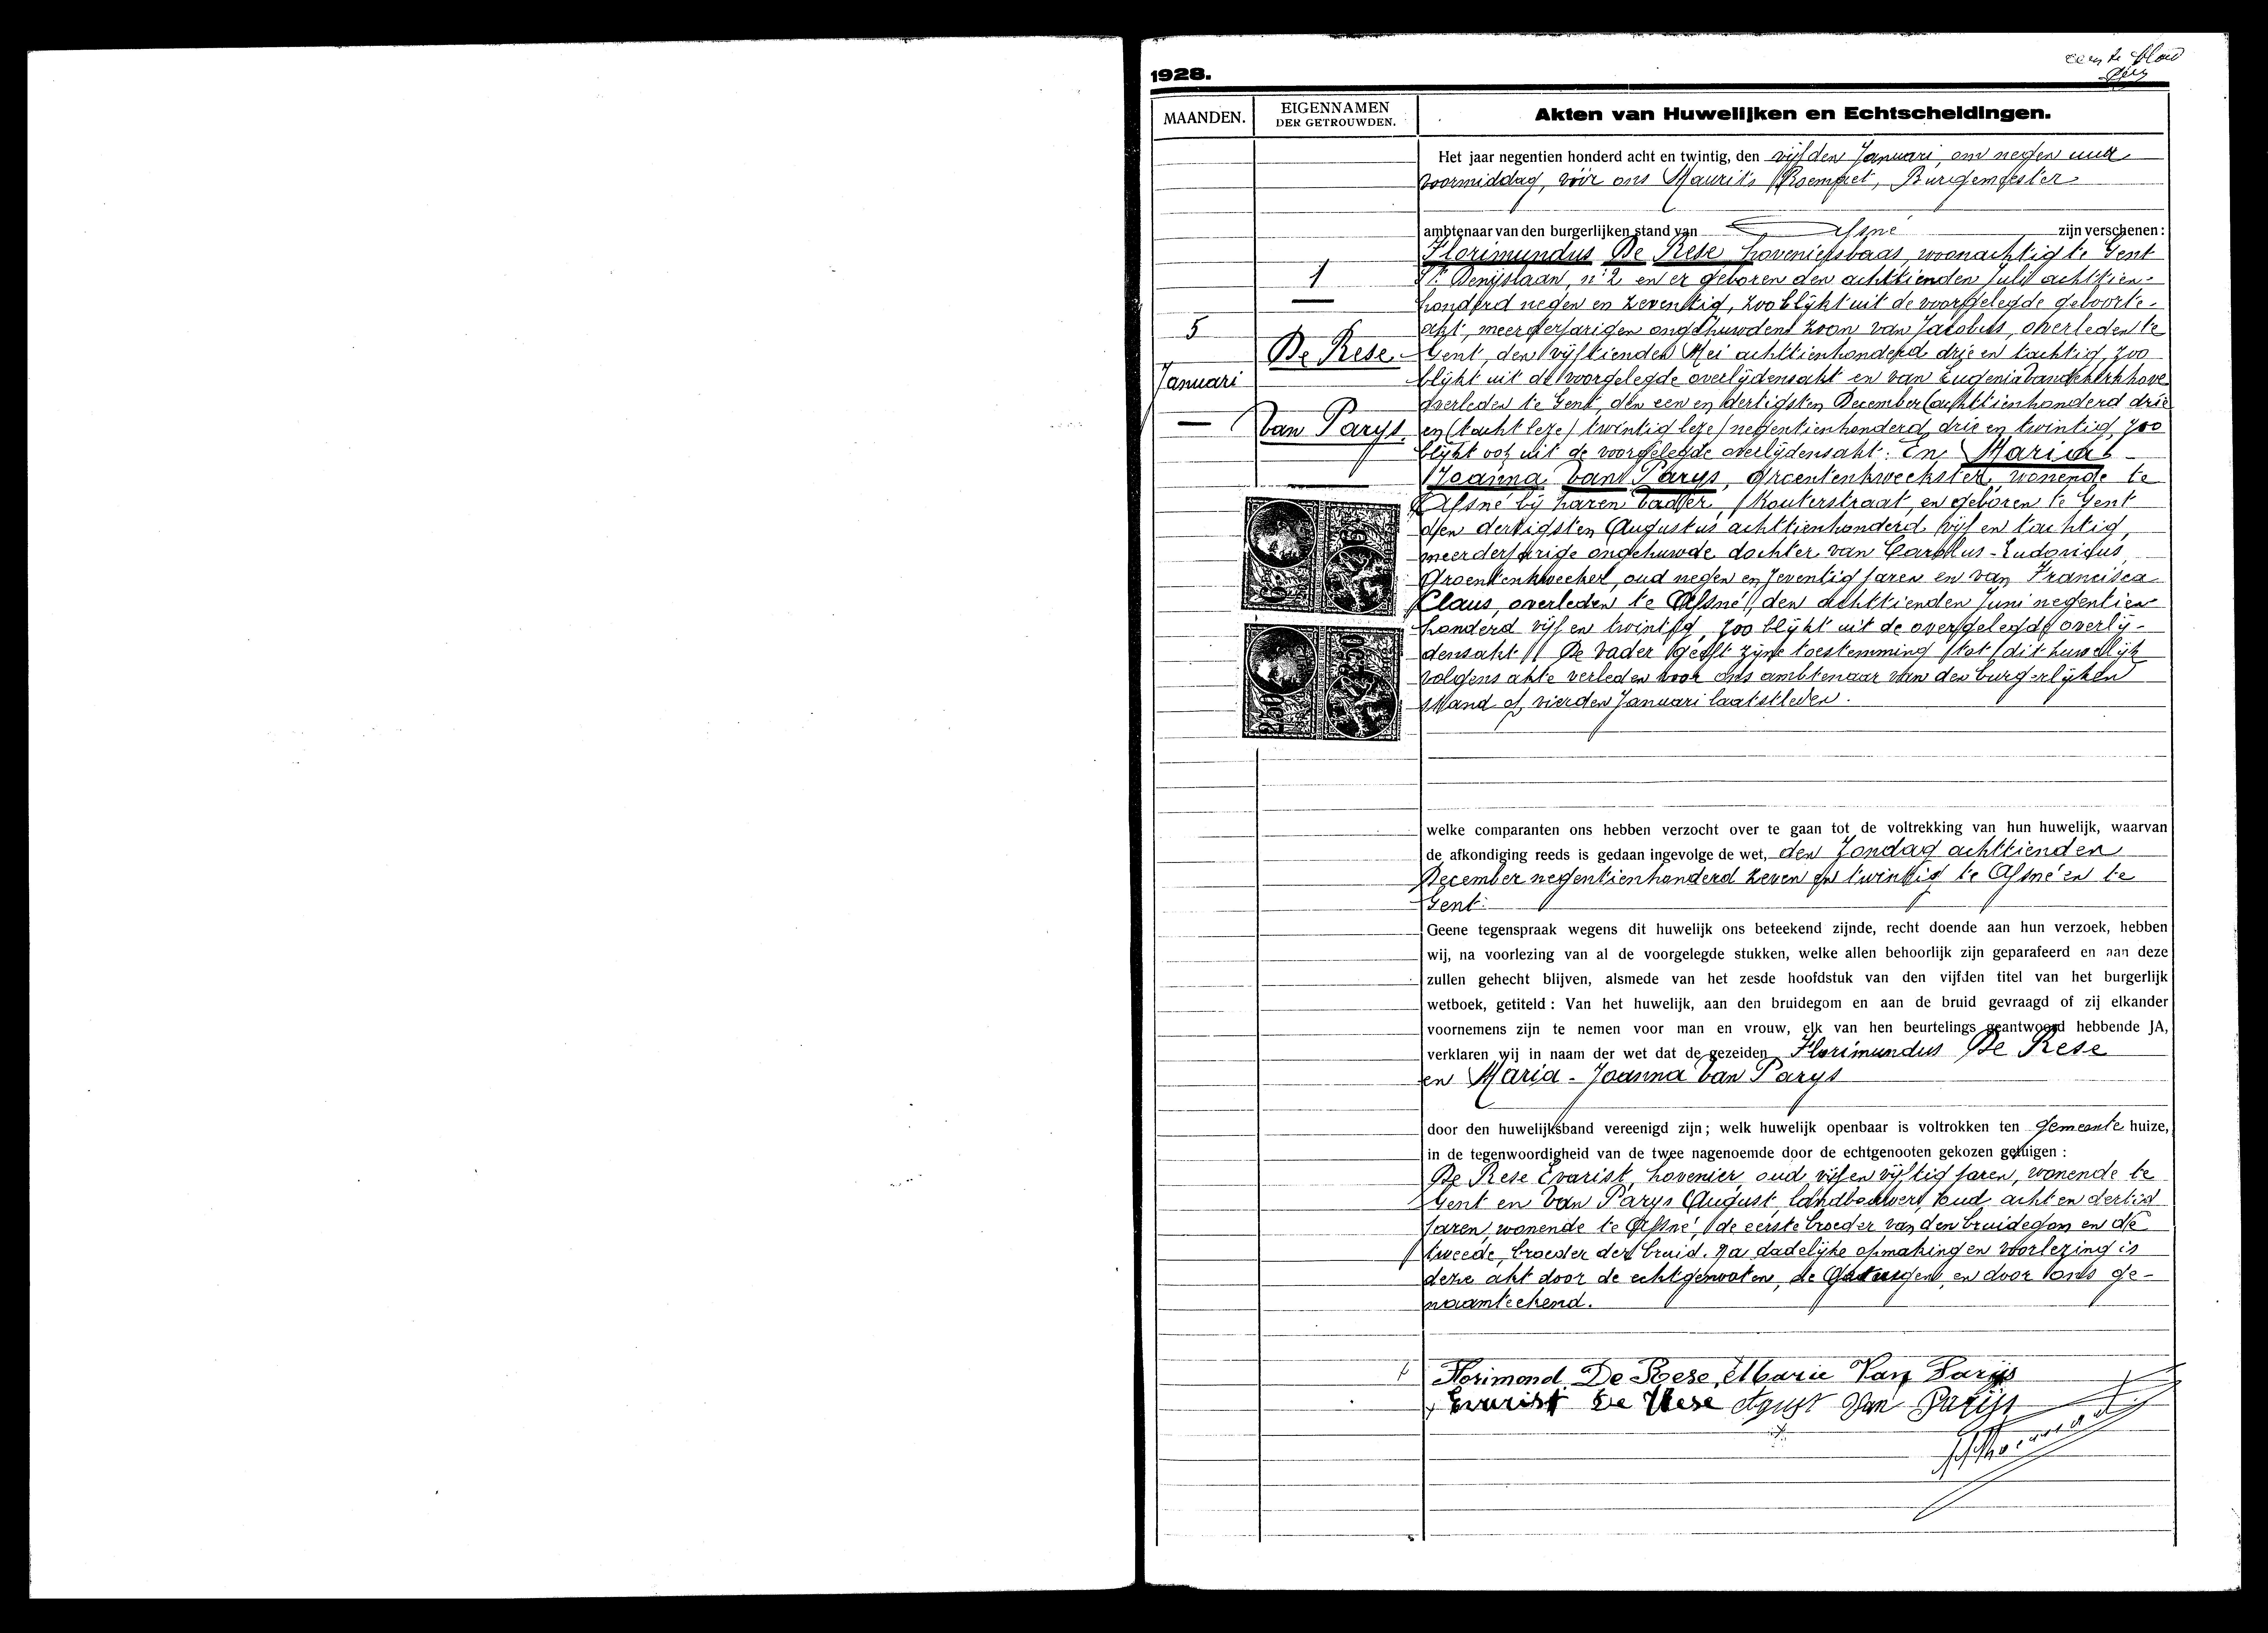 eerste blad
1928.
MAANDEN.
EIGENNAMEN
DER GETROUWDEN.
Akten van Huwelijken en Echtscheidingen.
1
5
Januari
De Rese
Van Parys
Het jaar negentien honderd acht en twintig, den vijfden Januari, om negen uur
voormiddag, vóór ons Maurits Roempret, Burgemeester
ambtenaar van den burgerlijken stand van Afsné zijn verschenen :
Florimundus De Rese hoveniersbaas, woonachtig te Gent
St. Denijslaan, n° 2 en er geboren den achttienden Juli achttien-
honderd negen en zeventig, zoo blijkt uit de voorgelegde geboorte-
akt, meerderjarigen ongehuwden zoon van Jacobus, overleden te
Gent, den vijftienden Mei achttienhonderd drie en tachtig, zoo
blijkt uit de voorgelegde overlijdensakt en van Eugenia Vandekerkhove
overleden te Gent, den een en dertigsten December (achttienhonderd drie
en (tacht leze) twintig leze) negentienhonderd drie en twintig, zoo
blijkt ook uit de voorgelegde overlijdensakt. En Maria-
Joanna Van Parys, groentenkweekster, wonende te
Afsné bij haren vader, Kouterstraat, en geboren te Gent
den dertigsten Augustus achttienhonderd vijf en tachtig,
meerderjarige ongehuwde dochter van Carolus-Ludovicus,
Groentenkweeker, oud negen en zeventig jaren en van Francisca
Claus, overleden te Afsné, den achttienden Juni negentien
honderd vijf en twintig, zoo blijkt uit de overgelegde overlij-
densakt // De vader geeft zijne toestemming tot dit huwelijk
volgens akte verleden voor ons ambtenaar van den burgerlijken
stand op vierden Januari laatstleden.
welke comparanten ons hebben verzocht over te gaan tot de voltrekking van hun huwelijk, waarvan
de afkondiging reeds is gedaan ingevolge de wet, den Zondag achttienden
December negentienhonderd zeven en twintig te Afsné en te
Gent.
Geene tegenspraak wegens dit huwelijk ons beteekend zijnde, recht doende aan hun verzoek, hebben
wij, na voorlezing van al de voorgelegde stukken, welke allen behoorlijk zijn geparafeerd en aan deze
zullen gehecht blijven, alsmede van het zesde hoofdstuk van den vijfden titel van het burgerlijk
wetboek, getiteld : Van het huwelijk, aan den bruidegom en aan de bruid gevraagd of zij elkander
voornemens zijn te nemen voor man en vrouw, elk van hen beurtelings geantwoord hebbende JA,
verklaren wij in naam der wet dat de gezeiden Florimundus De Rese
en Maria-Joanna Van Parys
door den huwelijksband vereenigd zijn ; welk huwelijk openbaar is voltrokken ten gemeente huize,
in de tegenwoordigheid van de twee nagenoemde door de echtgenooten gekozen getuigen :
De Rese Evarist, hovenier, oud vijf en vijftig jaren, wonende te
Gent en Van Parys August, landbouwer, oud acht en dertig
jaren, wonende te Afsné, de eerste broeder van den bruidegom en de
tweede, broeder der bruid. Na dadelijke opmaking en voorlezing is
deze akt door de echtgenooten, de Getuigen en door ons ge-
naamteekend.
Florimond De Rese, Marie Van Parijs
Evarist De Rese August Van Parijs